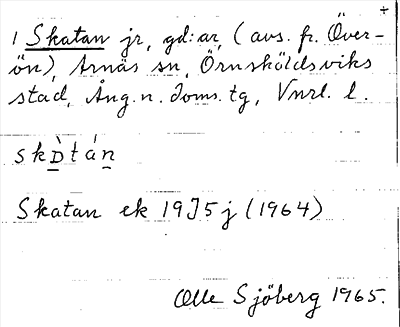 +
1 Skatan jr, gd:ar, (avs. fr. Över-
ön), Arnäs sn, Örnsköldsviks
stad, Ång. n. doms. tg, Vnrl. l.
skt̀án
Skatan ek 19J5j (1964)
Olle Sjöberg 1965.